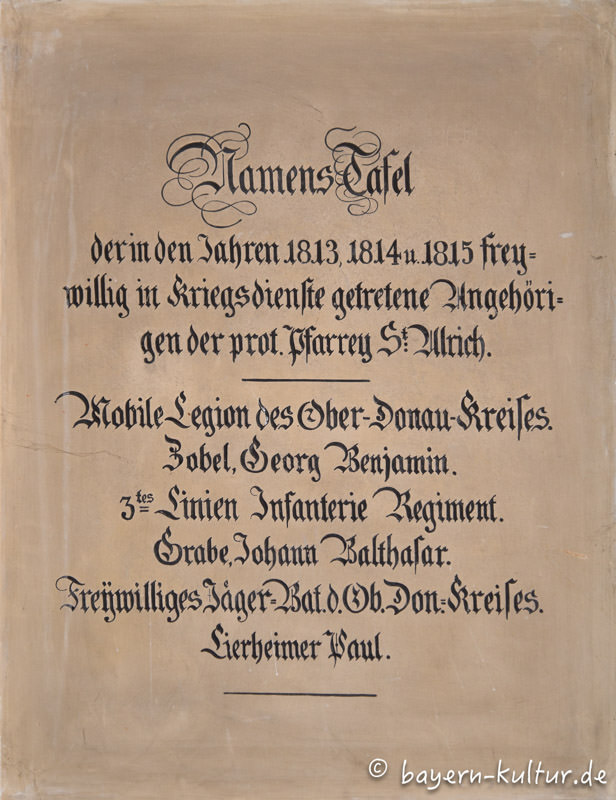 Namens Tafel
der in den Jahren 1813, 1814 u. 1815 frey=
willig in Kriegsdienste getretene Angehöri=
gen der prot. Pfarrey St. Ulrich.
Mobile-Legion des Ober-Donau-Kreises.
Zobel, Georg Benjamin.
3tes Linien Infanterie Regiment.
Grabe, Johann Balthasar.
Freÿwilliges Jäger=Bat. d. Ob. Don.=Kreises.
Lierheimer Paul.
© bayern-kultur.de